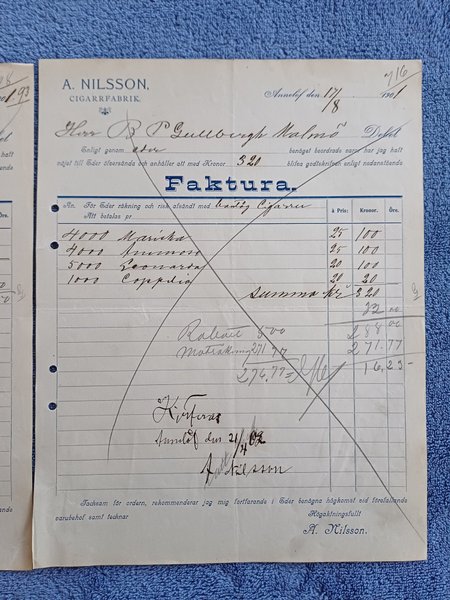 716
A. NILSSON,
CIGARRFABRIK.
Annelöf den 17/8 1901
Herr B P Gullbergh Malmö Debet
Enligt genom eder benäget beordrade varor har jag haft
nöjet till Eder öfversända och anhåller att med Kronor 320 blifva godtskrifven enligt nedanstående
Faktura.
An. För Eder räkning och risk afsändt med Cigarrer à Pris: Kronor. Öre.
Att betalas pr
4000 Maricka 25 100
4000 25 100
5000 Leonarda 20 100
1000 Coppelia 20 20
Summa Kr 320
32 00
Rabatt 5.00 288 00
Moträkning 271 77 271.77
276,77 16,23-
Kvitteras
Annelöf den 21/4 02
A Nilsson
Tacksam för ordern, rekommenderar jag mig fortfarande i Eder benägna hågkomst vid förefallande
varubehof samt tecknar Högaktningsfullt
A. Nilsson.